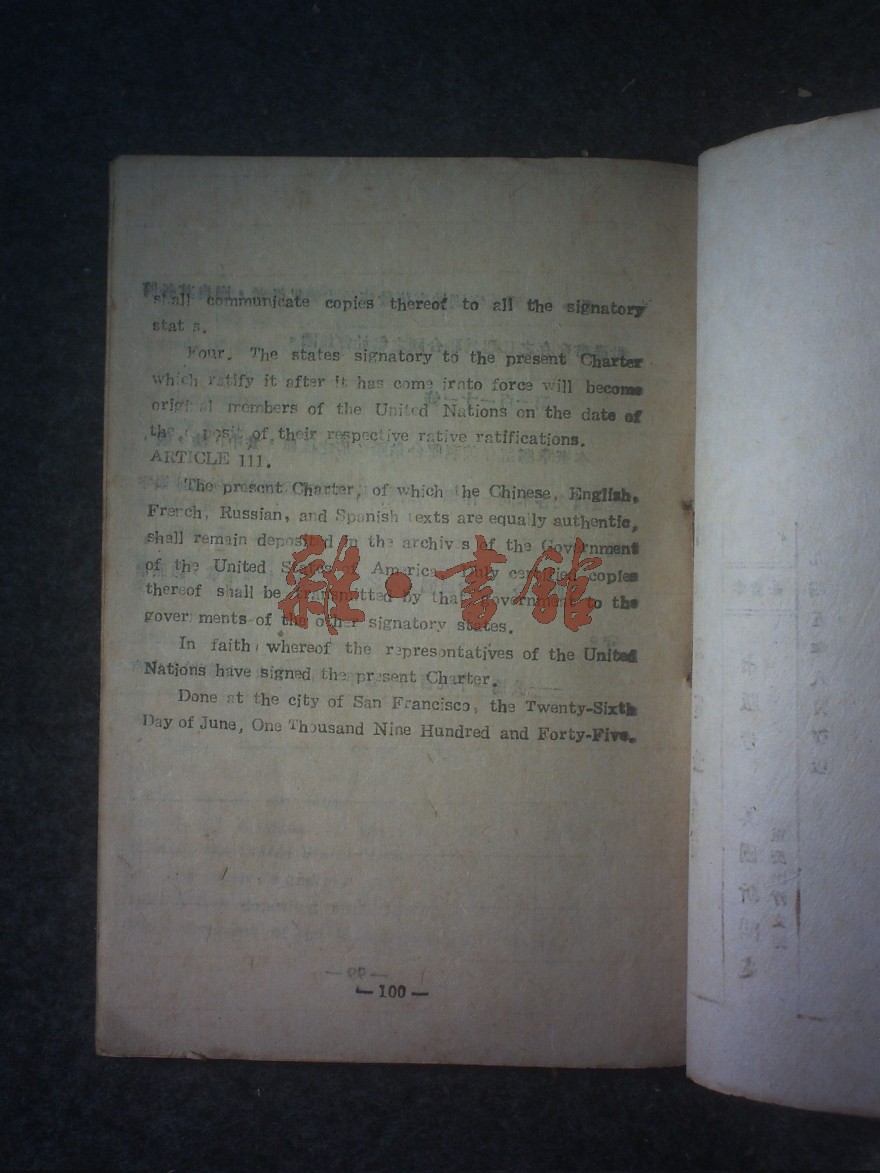 shall communicate copies thereof to all the signatory
stat s.
Four. The states signatory to the present Charter
which ratify it after it has come irato force will become
original members of the United Nations on the date of
the deposit of their respective rative ratifications.
ARTICLE 111.
The present Charter, of which the Chinese, English,
French, Russian, and Spanish texts are equally authentic,
shall remain deposited in the archiv s of the Government
of the United States of America. Duly certified copies
thereof shall be transmitted by that Government to the
governments of the other signatory states.
In faith whereof the representatives of the United
Nations have signed the present Charter.
Done at the city of San Francisco, the Twenty-Sixth
Day of June, One Thousand Nine Hundred and Forty-Five.
雜·書館
—100—